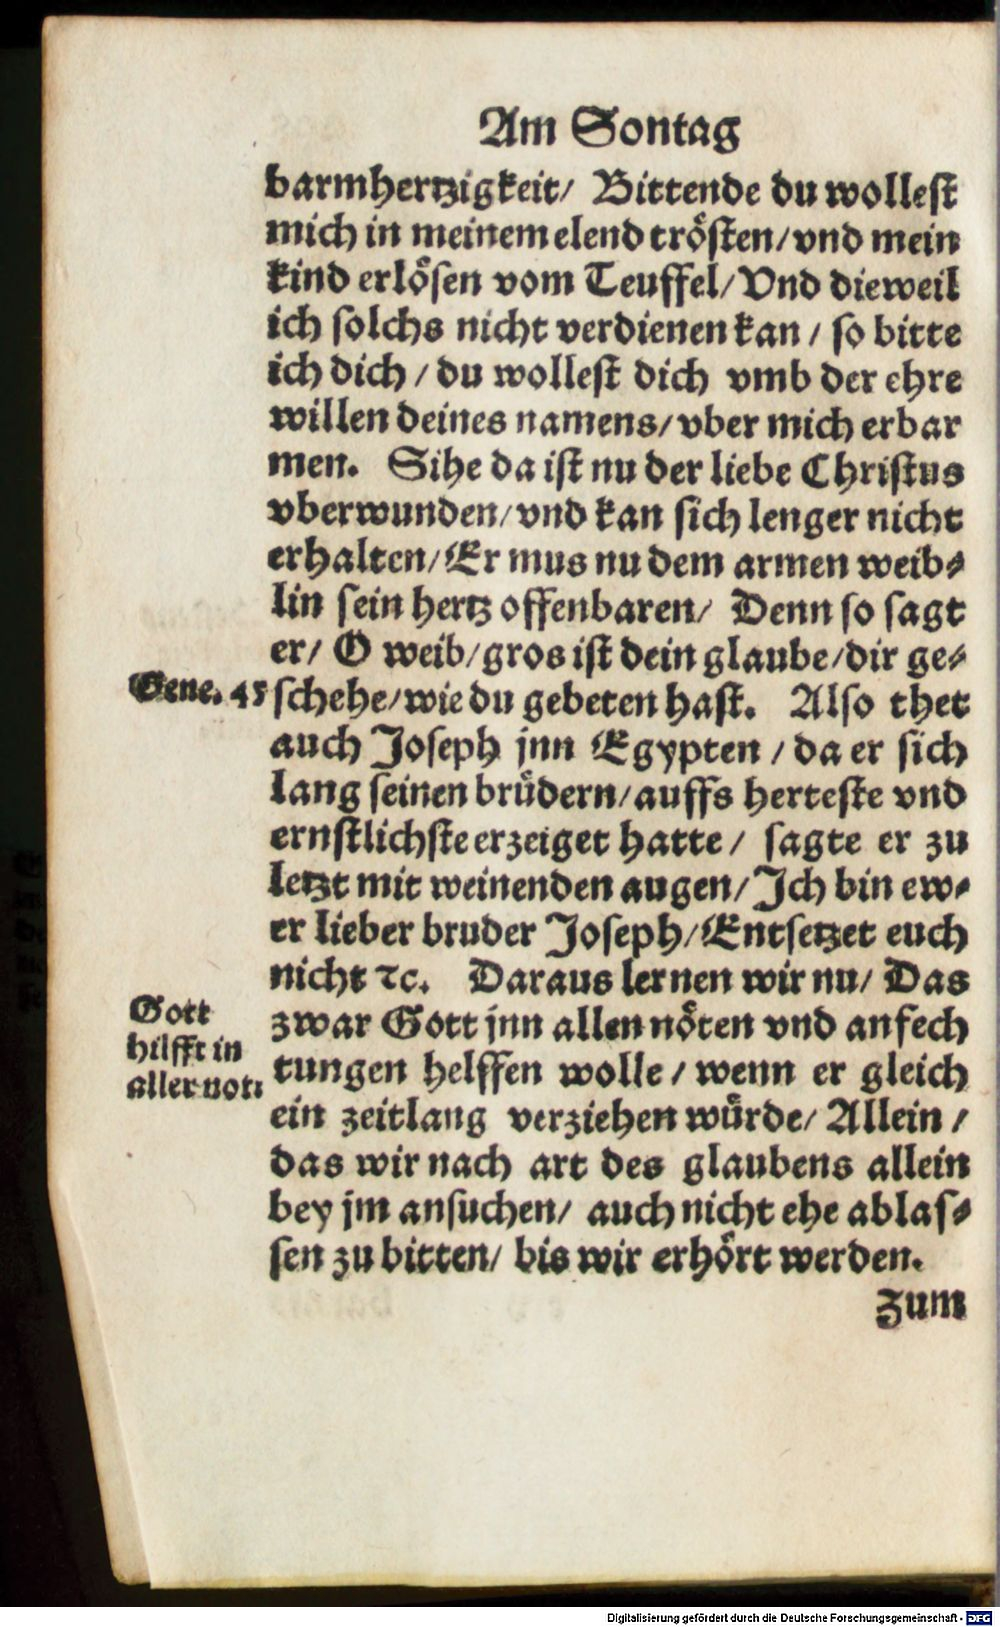 Am Sontag
barmhertzigkeit/ Bittende du wollest
mich in meinem elend trösten/vnd mein
kind erlösen vom Teuffel/Vnd dieweil
ich solchs nicht verdienen kan / so bitte
ich dich / du wollest dich vmb der ehre
willen deines namens/vber mich erbar
men. Sihe da ist nu der liebe Christus
vberwunden/vnd kan sich lenger nicht
erhalten/Er mus nu dem armen weib⸗
lin sein hertz offenbaren/ Denn so sagt
er/ O weib/gros ist dein glaube/dir ge⸗
Gene. 45
schehe/wie du gebeten hast. Also thet
auch Joseph jnn Egypten / da er sich
lang seinen brüdern/auffs herteste vnd
ernstlichste erzeiget hatte / sagte er zu
letzt mit weinenden augen/Ich bin ew⸗
er lieber bruder Joseph/Entsetzet euch
nicht ꝛc. Daraus lernen wir nu/ Das
Gott
hilfft in
aller not.
zwar Gott jnn allen nöten vnd anfech
tungen helffen wolle / wenn er gleich
ein zeitlang verziehen würde/ Allein /
das wir nach art des glaubens allein
bey jm ansuchen/ auch nicht ehe ablas⸗
sen zu bitten/ bis wir erhört werden.
zum
Digitalisierung gefördert durch die Deutsche Forschungsgemeinschaft - DFG